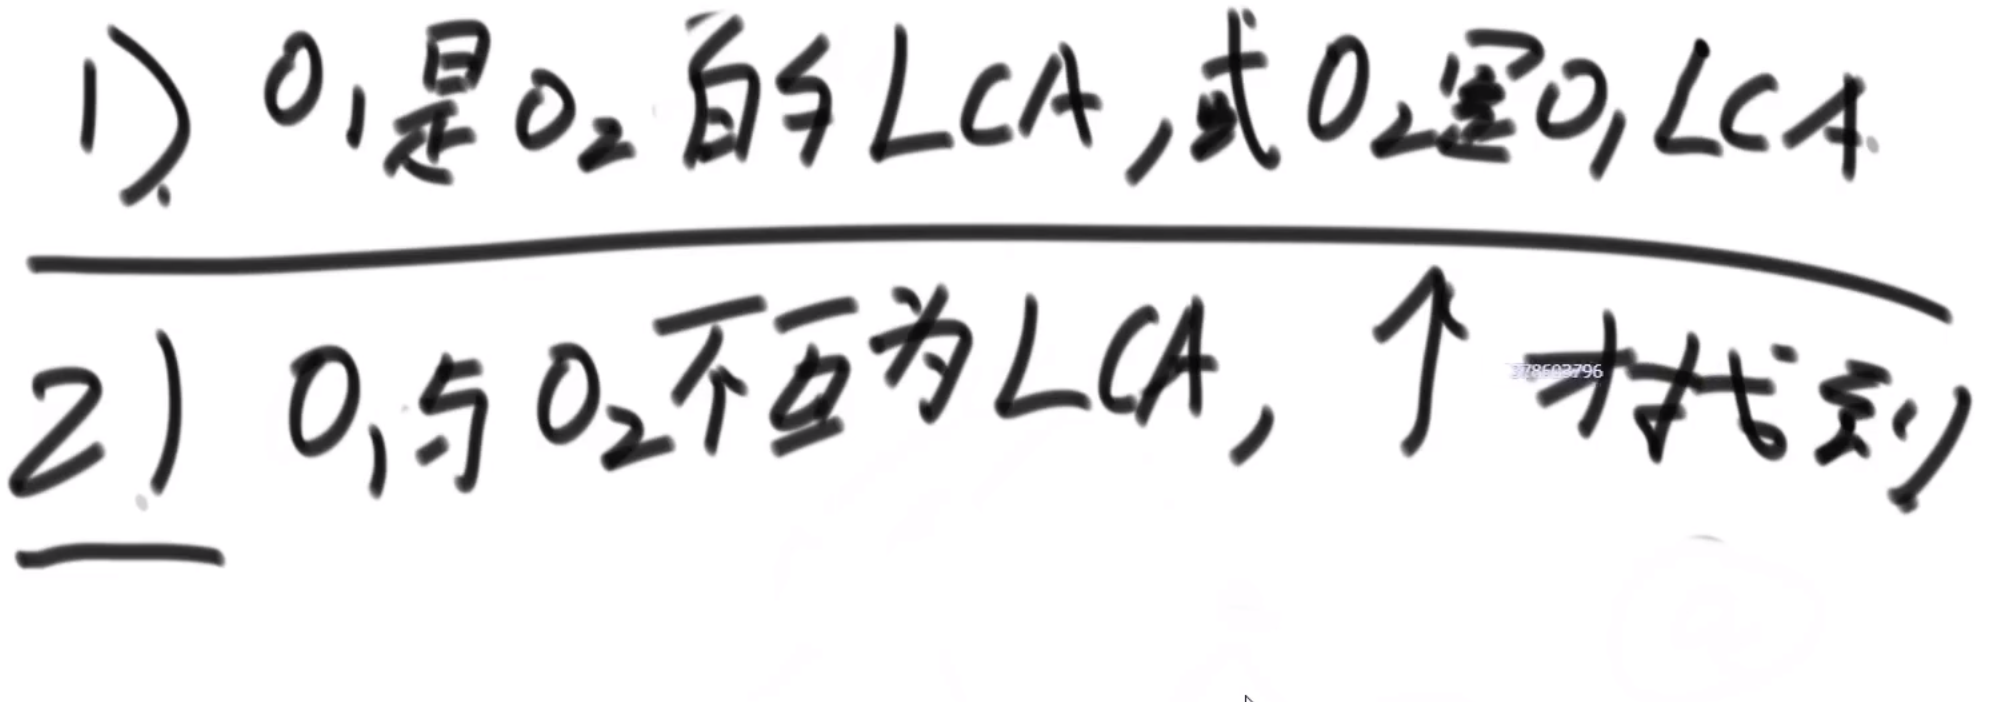 1) O₁是O₂的LCA,或O₂是O₁LCA
2) O₁与O₂不互为LCA, ↑ 才找到
378603796